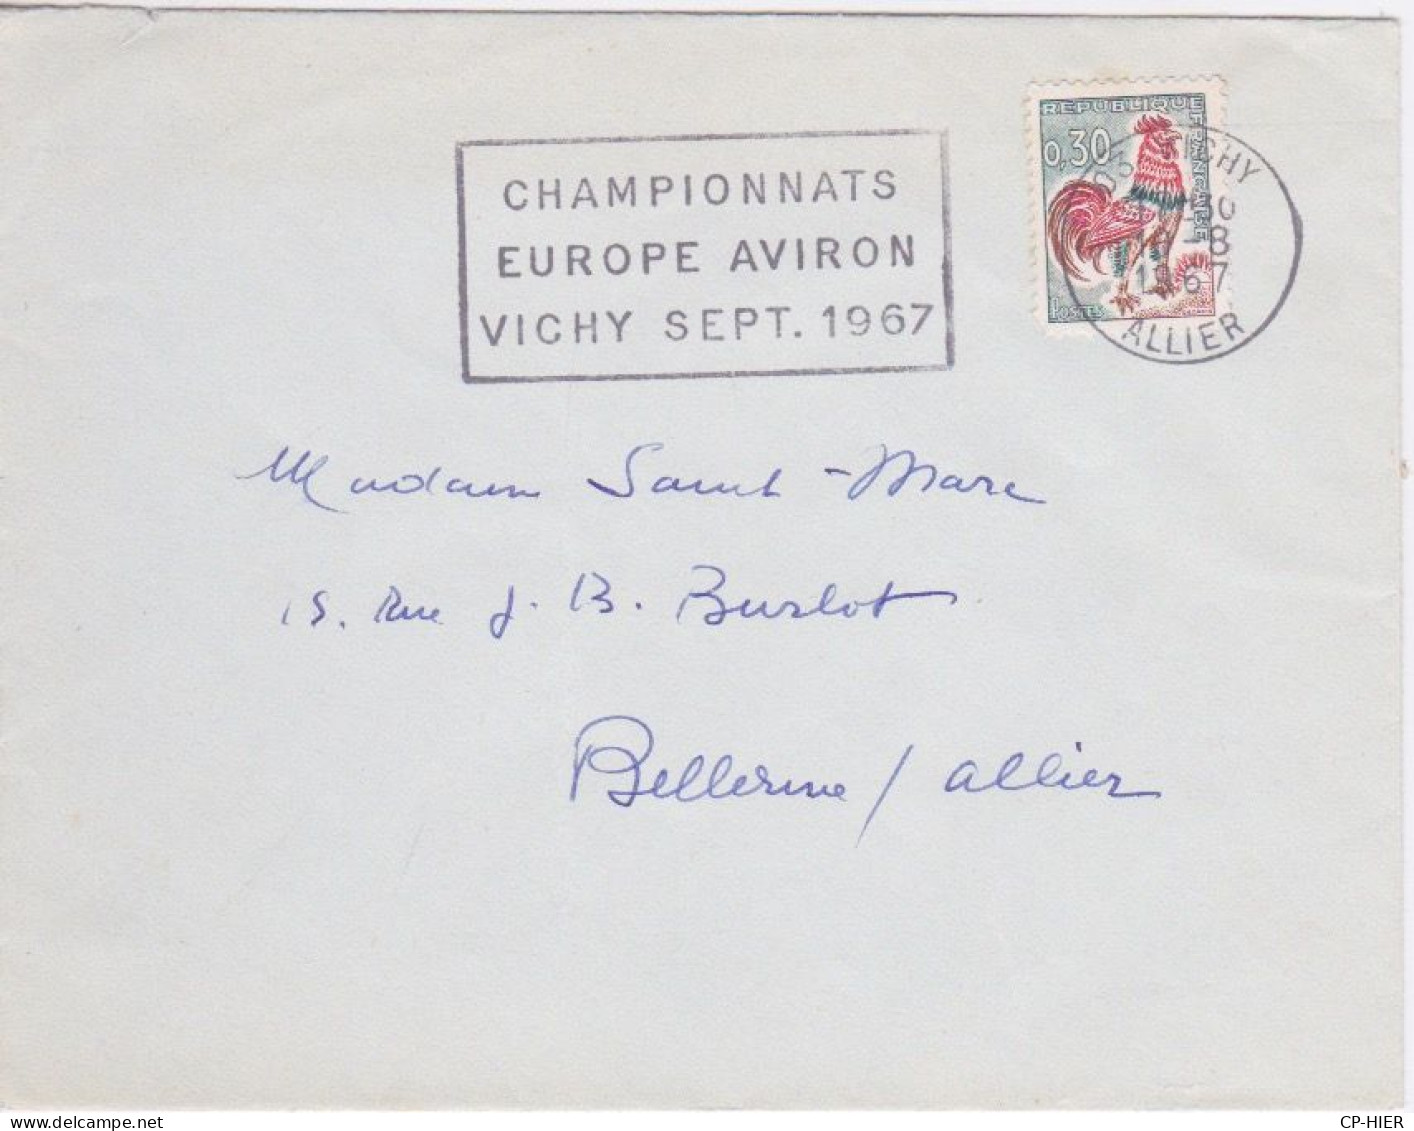 CHAMPIONNATS
EUROPE AVIRON
VICHY SEPT. 1967
REPUBLIQUE FRANÇAISE
0,30
POSTES
VICHY
-8
1967
ALLIER
Madame Saint-Marc
15. Rue J. B. Burlot
Bellerive / Allier
delcampe.net
CP-HIER